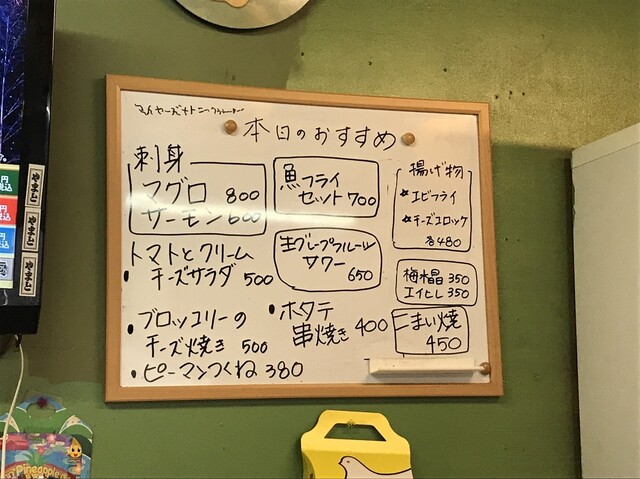 本日のおすすめ
刺身
マグロ 800
サーモン 600
魚フライ
セット 700
揚げ物
★エビフライ
★チーズコロッケ
各480
トマトとクリーム
・チーズサラダ 500
生グレープフルーツ
サワー
650
梅水晶 350
エイヒレ 350
・ブロッコリーの
チーズ焼き 500
・ホタテ
串焼き 400
こまい焼
450
・ピーマンつくね 380
やまと
やまと
やまと
Pineapple